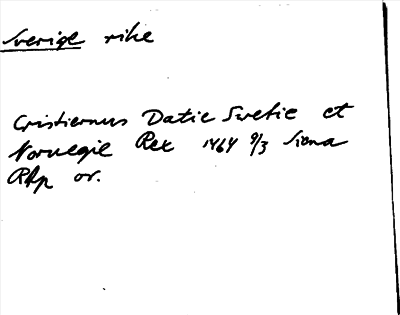 Sverige rike
Cristiernus Datie Swetie et
Norvegie Rex 1464 9/3 Siena
RAp or.